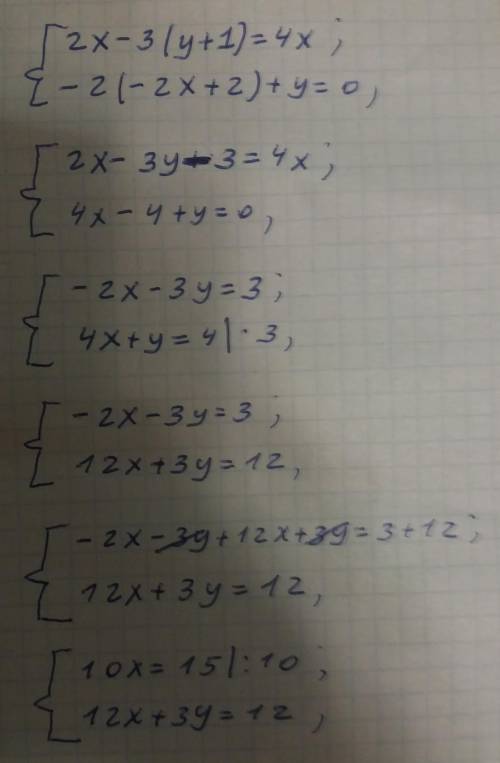 2x-3(y+1)=4x;
-2(-2x+2)+y=0,
2x-3y-3=4x;
4x-4+y=0,
-2x-3y=3;
4x+y=4|·3,
-2x-3y=3;
12x+3y=12,
-2x-3y+12x+3y=3+12;
12x+3y=12,
10x=15|:10;
12x+3y=12,